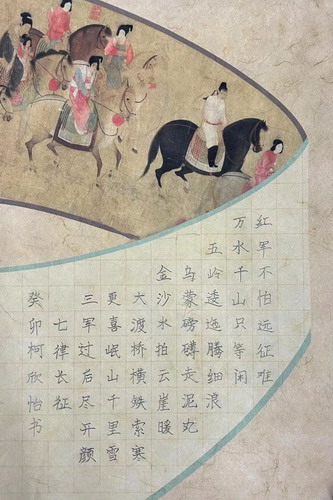 红军不怕远征难
万水千山只等闲
五岭逶迤腾细浪
乌蒙磅礴走泥丸
金沙水拍云崖暖
大渡桥横铁索寒
更喜岷山千里雪
三军过后尽开颜
七律长征
癸卯柯欣怡书